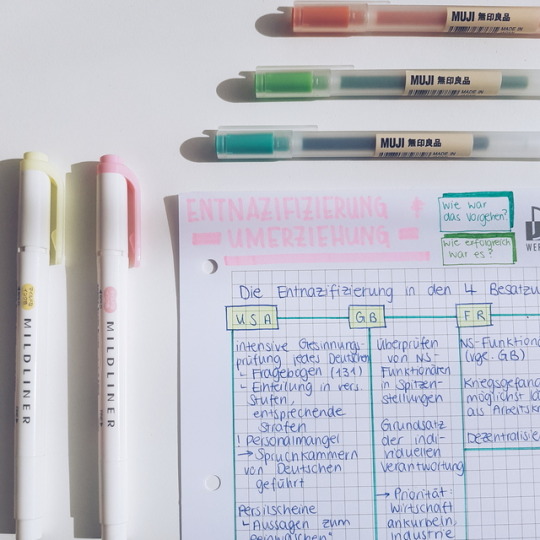 MUJI 無印良品
MADE IN
MUJI 無印良品
MADE IN
MUJI 無印良品
MADE IN
MILDLINER
MILDLINER
ENTNAZIFIZIERUNG
UMERZIEHUNG
wie war
das vorgehen?
wie erfolgreich
war es?
WER
Die Entnazifizierung in den 4 Besatzu
USA
intensive Gesinnungs-
prüfung jedes Deutschen
Fragebogen (131)
Einteilung in vers.
Stufen,
entsprechende
Strafen
! Personalmangel
→ Spruchkammern
von Deutschen
geführt
Persilscheine
Aussagen zum
GB
überprüfen
von NS-
Funktionären
in Spitzen-
stellungen
Grundsatz
der indi-
viduellen
Verantwortung
→ Priorität:
Wirtschaft
ankurbeln,
Industrie
FR
NS-Funktion
(vgl. GB)
Kriegsgefang
möglichst
als Arbeitsk
Dezentralisie